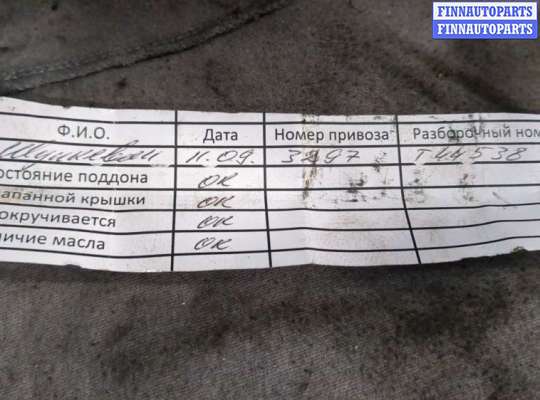 FINNAUTOPARTS
FINNAUTOPARTS
Ф.И.О. Дата Номер привоза Разборочный ном
11.09. 3297 T44538
остояние поддона ок
апанной крышки ок
окручивается ок
личие масла ок